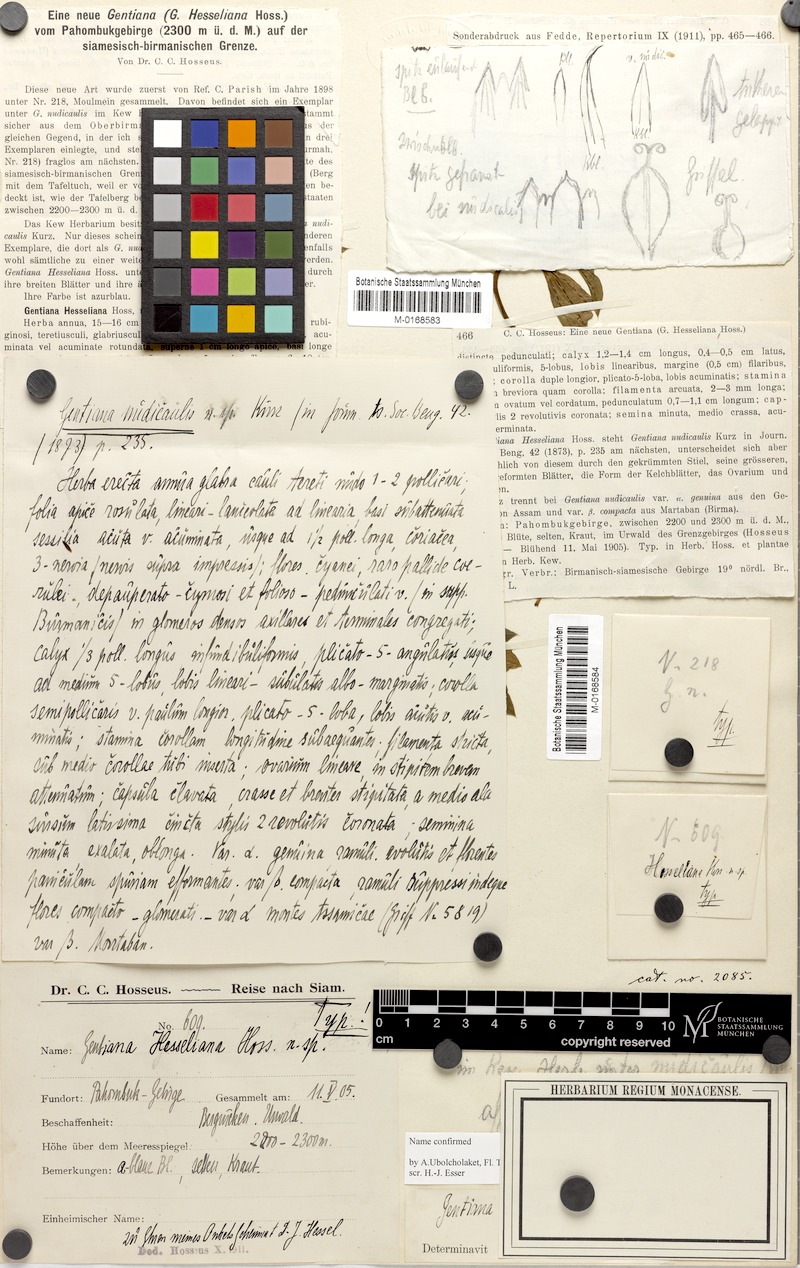 Eine neue Gentiana (G. Hesseliana Hoss.)
vom Pahombukgebirge (2300 m ü. d. M.) auf der
siamesisch-birmanischen Grenze.
Von Dr. C. C. Hosseus.
Diese neue Art wurde zuerst von Ref. C. Parish im Jahre 1898
unter Nr. 218, Moulmein gesammelt. Davon befindet sich ein Exemplar
unter G. nudicaulis im Kew stammt
sicher aus dem Oberbirm us der
gleichen Gegend, in der ich s n drei
Exemplaren einlegte, und ste urmah,
Nr. 218) fraglos am nächsten. te des
siamesisch-birmanischen Gren (Berg
mit dem Tafeltuch, weil er vo en be-
deckt ist, wie der Tafelberg be staaten
zwischen 2200—2300 m ü. d.
Das Kew Herbarium besit nudi-
caulis Kurz. Nur dieses schein nderen
Exemplare, die dort als G. nu enfalls
wohl sämtliche zu einer weite werden.
Gentiana Hesseliana Hoss. unte durch
ihre breiten Blätter und ihre ä r.
Ihre Farbe ist azurblau.
Gentiana Hesseliana Hoss,
Herba annua, 15—16 cm rubi-
ginosi, teretiusculi, glabriuscul acu-
minata vel acuminate rotundata, superne 1 cm longo apice, basi longe
Sonderabdruck aus Fedde, Repertorium IX (1911), pp. 465—466.
v. nudic.
bei nudicalis
Griffel
Botanische Staatssammlung München
M-0168583
466 C. C. Hosseus: Eine neue Gentiana (G. Hesseliana Hoss.)
distincte pedunculati; calyx 1,2—1,4 cm longus, 0,4—0,5 cm latus,
uliformis, 5-lobus, lobis linearibus, margine (0,5 cm) filaribus,
; corolla duple longior, plicato-5-loba, lobis acuminatis; stamina
breviora quam corolla; filamenta arcuata, 2—3 mm longa;
ovatum vel cordatum, pedunculatum 0,7—1,1 cm longum; cap-
lis 2 revolutivis coronata; semina minuta, medio crassa, acu-
erminata.
iana Hesseliana Hoss. steht Gentiana nudicaulis Kurz in Journ.
Beng. 42 (1873), p. 235 am nächsten, unterscheidet sich aber
hlich von diesem durch den gekrümmten Stiel, seine grösseren,
eformten Blätter, die Form der Kelchblätter, das Ovarium und
en.
z trennt bei Gentiana nudicaulis var. α. genuina aus den Ge-
on Assam und var. β. compacta aus Martaban (Birma).
n: Pahombukgebirge, zwischen 2200 und 2300 m ü. d. M.,
Blüte, selten, Kraut, im Urwald des Grenzgebirges (Hosseus
— Blühend 11. Mai 1905). Typ. in Herb. Hoss. et plantae
n Herb. Kew.
gr. Verbr.: Birmanisch-siamesische Gebirge 19° nördl. Br.,
L.
Gentiana nudicaulis n. sp. Kurz (in Journ. As. Soc. Beng. 42.
(1873) p. 235.
Herba erecta annua glabra cauli tereti nudo 1-2 pollicari;
folia apice rosulata, lineari-lanceolata ad linearia, basi subattenuata
sessilia acuta v. acuminata, usque ad 1/2 poll. longa, coriacea,
3-nervia (nervis supra impressis); flores cyanei, raro pallide coe-
rulei, depauperato-cymosi et folioso-pedunculati v. (in supp.
Burmanicis) in glomeros densos axillares et terminales congregati;
calyx 1/3 poll. longus infundibuliformis, plicato-5-angulatus, usque
ad medium 5-lobus, lobis lineari-subulatis albo-marginatis; corolla
semipollicaris v. paulum longior, plicato-5-loba, lobis acutis v. acu-
minatis; stamina corollam longitudine subaequantes; filamenta stricta,
sub medio corollae tubi inserta; ovarium lineare, in stipitem brevem
attenuatum; capsula clavata, crasse et breviter stipitata, a medio ala
sursum latissima cincta stylis 2 revolutis coronata; semina
minuta, exalata, oblonga. Var. α. genuina ramuli evolutis et florentes
paniculam spuriam efformantes. var β. compacta, ramuli suppressi indeque
flores compacto-glomerati. - var α montes Assamicae (Griff No 5819)
var β. Martaban.
Botanische Staatssammlung München
M-0168584
N. 218
G. n.
typ.
N. 609.
Hesseliana Hoss n. sp.
typ.
cat. no. 2085.
Dr. C. C. Hosseus. Reise nach Siam.
No. 609. Typ.!
Name: Gentiana Hesseliana Hoss. n. sp.
Fundort: Pahombuk-Gebirge Gesammelt am: 11. V. 05.
Beschaffenheit: Urwald.
Höhe über dem Meeresspiegel: 2200-2300 m.
Bemerkungen: a-blaue Bl., selten, Kraut.
Einheimischer Name:
zu Ehren meines Onkels Geheimrat Hessel.
Ded. Hosseus X.
0 1 2 3 4 5 6 7 8 9 10
cm copyright reserved
BOTANISCHE
STAATSSAMMLUNG
MÜNCHEN
in Kew Herb. unter nudicaulis
HERBARIUM REGIUM MONACENSE.
Name confirmed
by A.Ubolcholaket, Fl. T
scr. H.-J. Esser
Gentiana
Determinavit